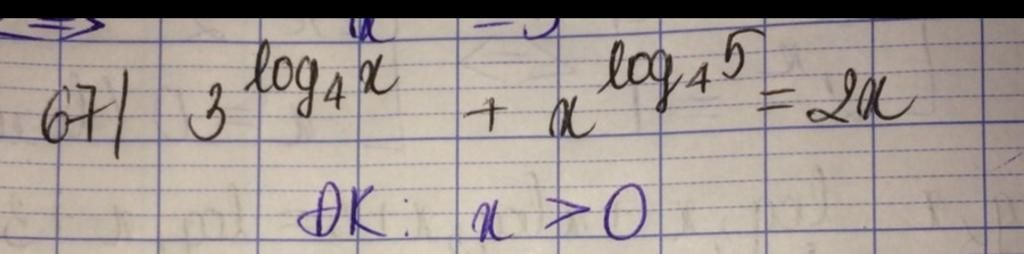 67/ 3^{log_4 x} + x^{log_4 5} = 2x
ĐK: x > 0